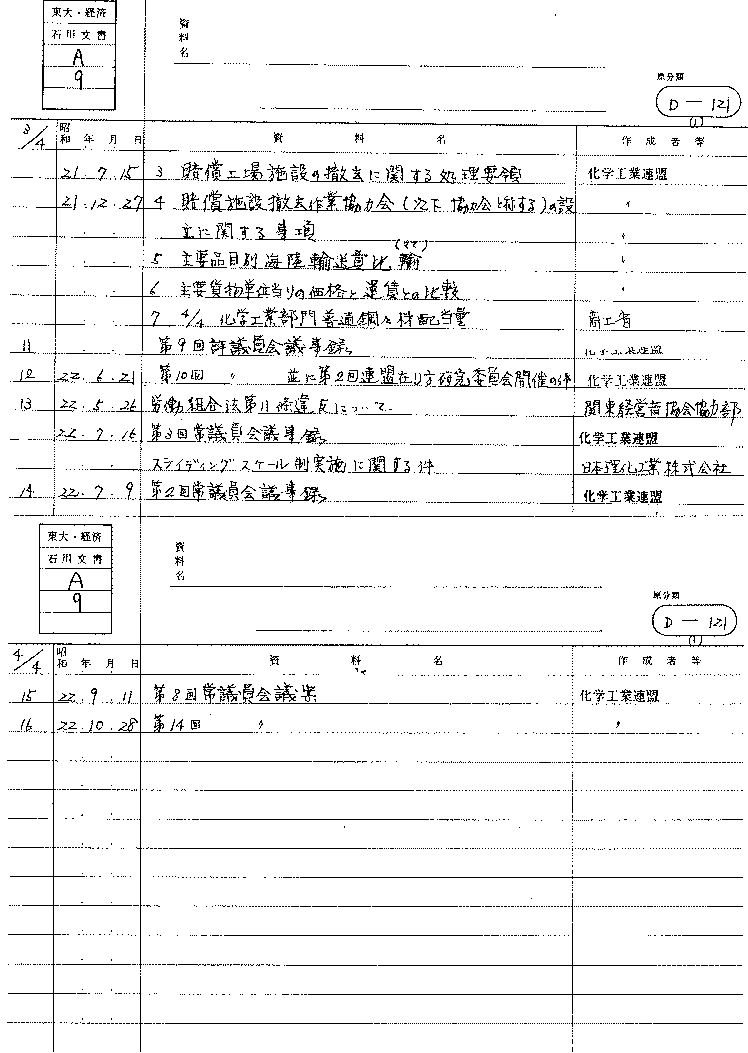 東大・経済
石川文書
A
9
資料名
原分類
D－121
(1)
3/4 昭和 年 月 日 資料名 作成者等
21.7.15 3 賠償工場施設の撤去に関する処理要領 化学工業連盟
21.12.27 4 賠償施設撤去作業協力会(以下協力会と称する)の設 〃
立に関する事項 〃
5 主要品目別海陸輸送費比 〃
6 主要貨物単位当りの価格と運賃との比較 〃
7 4/4 化学工業部門普通鋼々材配当量 商工省
11 第9回評議員会議事録 化学工業連盟
12 22.6.21 第10回 〃 並に第2回連盟在り方研究委員会開催の件 化学工業連盟
13 22.5.26 労働組合法第11條違反について 関東経営者協会協力部
22.7.16 第3回常議員会議事録 化学工業連盟
スライディングスケール制実施に関する件 日本理化工業株式会社
14 22.7.9 第2回常議員会議事録 化学工業連盟
東大・経済
石川文書
A
9
資料名
原分類
D－121
(1)
4/4 昭和 年 月 日 資料名 作成者等
15 22.9.11 第8回常議員会議案 化学工業連盟
16 22.10.28 第14回 〃 〃